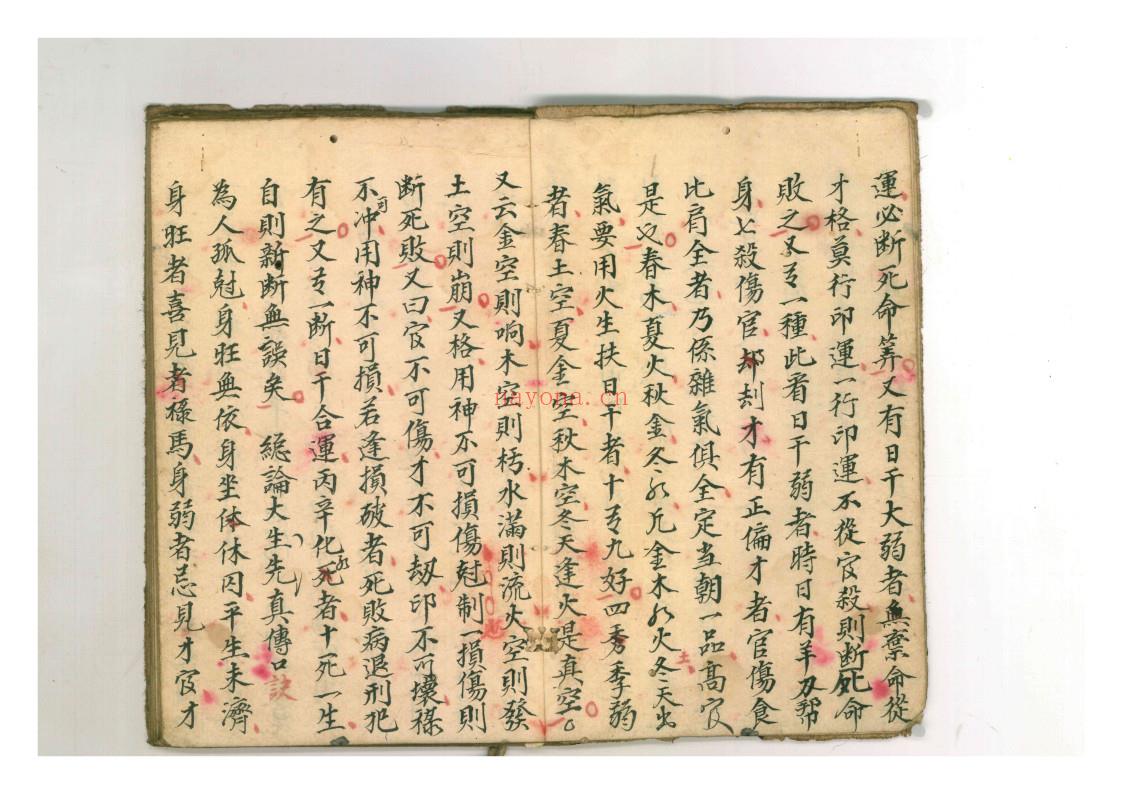 運必断死命筭又有日干大弱者無棄命從
才格莫行印運一行印運不從官殺則断死命
敗之又有一種此看日干弱者時日有羊刃幇
身七殺傷官却刦才有正偏才者官傷食
比肩全者乃係雜氣俱全定当朝一品高官
是必春木夏火秋金冬水凡金木水火土冬天出
氣要用火生扶日干者十有九好四季弱
者春土空夏金空秋木空冬天逢火是真空
又云金空則响木空則朽水滿則流火空則發
土空則崩又格用神不可損傷尅制一損傷則
断死敗又曰官不可傷才不可刼印不可壞祿
不可冲用神不可損若逢損破者死敗病退刑犯
有之又有一断日干合運丙辛化水死者十死一生
自則新断無誤矣 総論大生先真傳口訣
為人孤尅身旺無依身坐体休囚平生未濟
身旺者喜見者祿馬身弱者忌見才官才
nayona.cn